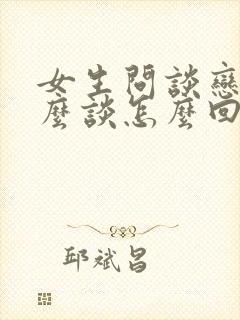 女生問談戀
麼談怎麼回
邱斌昌